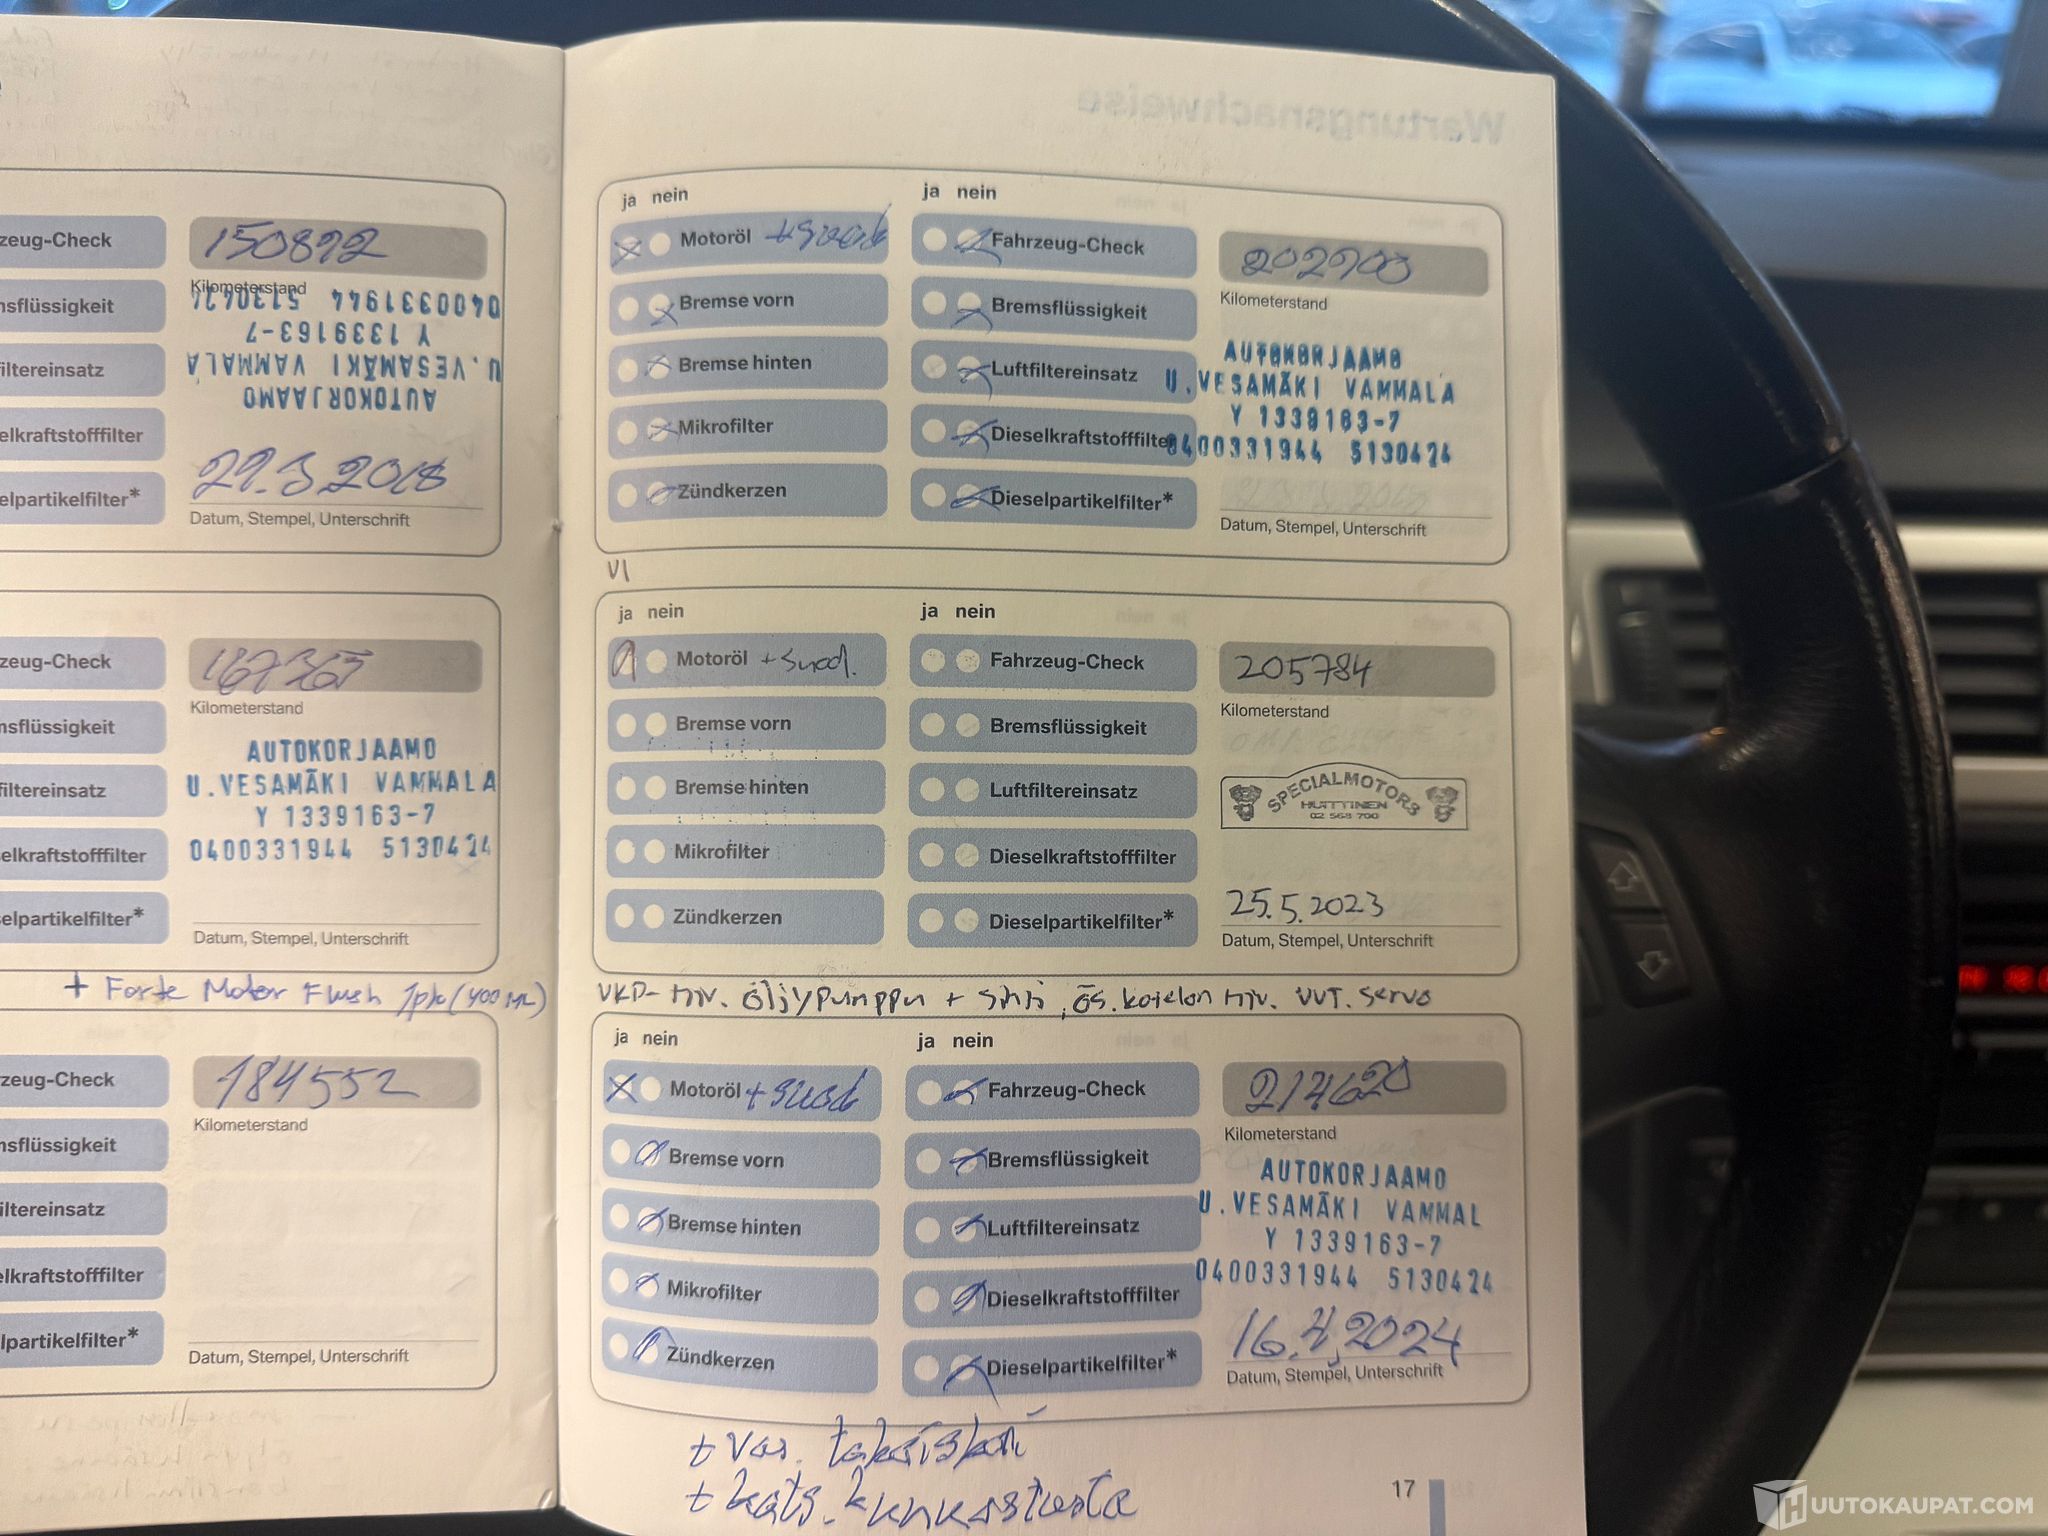 zeug-Check
150892
Kilometerstand
nsflüssigkeit
0400331944 5130424
Y 1339163-7
iltereinsatz
U.VESAMÄKI VAMMALA
AUTOKORJAAMO
elkraftstofffilter
29.3.2018
elpartikelfilter*
Datum, Stempel, Unterschrift
zeug-Check
Kilometerstand
nsflüssigkeit
AUTOKORJAAMO
U.VESAMÄKI VAMMALA
iltereinsatz
Y 1339163-7
elkraftstofffilter
0400331944 5130424
elpartikelfilter*
Datum, Stempel, Unterschrift
+ Forte Motor Flush 1plo (400 ML)
zeug-Check
184552
Kilometerstand
nsflüssigkeit
iltereinsatz
elkraftstofffilter
lpartikelfilter*
Datum, Stempel, Unterschrift
Wartungsnachweise
ja nein
ja nein
Motoröl + suod
Fahrzeug-Check
202900
Kilometerstand
Bremse vorn
Bremsflüssigkeit
Bremse hinten
Luftfiltereinsatz
AUTOKORJAAMO
U.VESAMÄKI VAMMALA
Y 1339163-7
0400331944 5130424
Mikrofilter
Dieselkraftstofffilter
Zündkerzen
Dieselpartikelfilter*
Datum, Stempel, Unterschrift
VI
ja nein
ja nein
Motoröl + suod.
Fahrzeug-Check
205784
Kilometerstand
Bremse vorn
Bremsflüssigkeit
Bremse hinten
Luftfiltereinsatz
SPECIALMOTORS
HUITTINEN
02 568 700
Mikrofilter
Dieselkraftstofffilter
Zündkerzen
Dieselpartikelfilter*
25.5.2023
Datum, Stempel, Unterschrift
VKD- tiiv. öljypumppu + sihti, ös. kotelon tiiv. VVT. servo
ja nein
ja nein
Motoröl + suod
Fahrzeug-Check
214620
Kilometerstand
Bremse vorn
Bremsflüssigkeit
Bremse hinten
Luftfiltereinsatz
AUTOKORJAAMO
U.VESAMÄKI VAMMAL
Y 1339163-7
0400331944 5130424
Mikrofilter
Dieselkraftstofffilter
Zündkerzen
Dieselpartikelfilter*
16.4.2024
Datum, Stempel, Unterschrift
+ vas.
+ kats.
17
HUUTOKAUPAT.COM